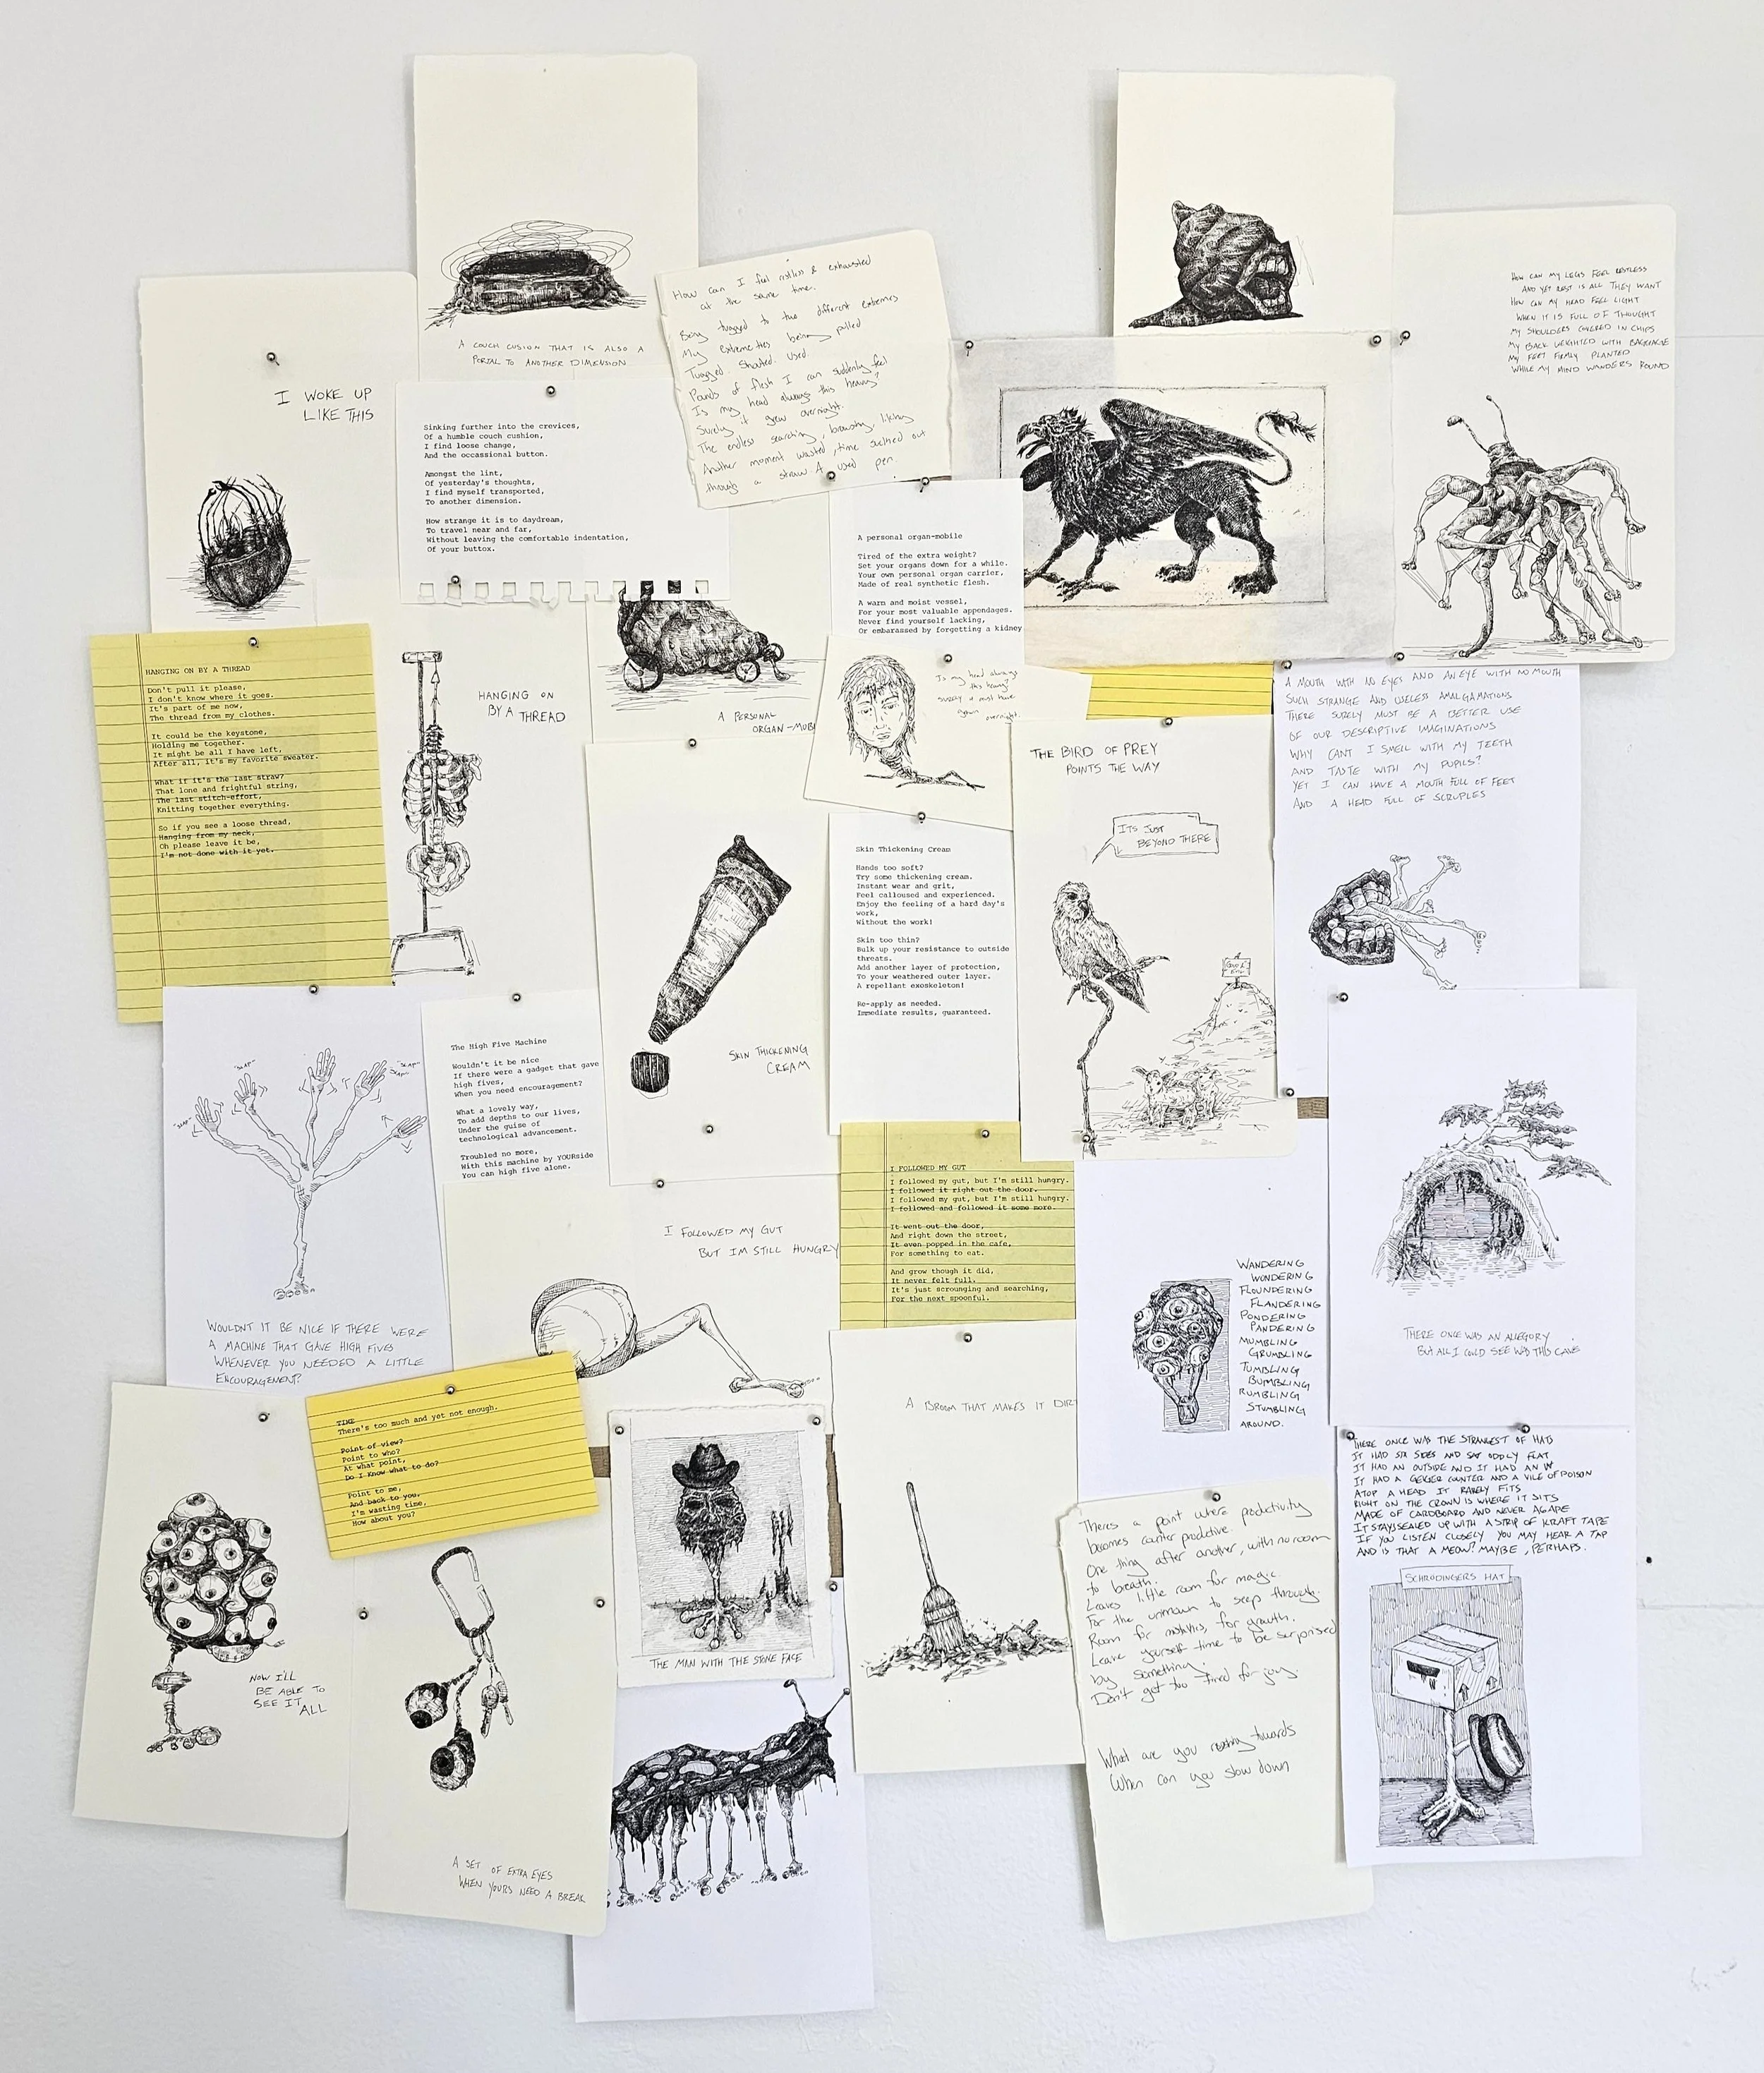 A COUCH CUSION THAT IS ALSO A
PORTAL TO ANOTHER DIMENSION
I WOKE UP
LIKE THIS
How can I feel restless & exhausted
at the same time.
Being tugged to two different extremes
My extremeties being pulled
Tugged. Shouted. used.
Pounds of flesh I can suddenly feel
Is my head always this heavy?
Surely it grew overnight.
The endless searching, browsing,
Another moment wasted, time sucked out
through a straw. A used pen.
HOW CAN MY LEGS FEEL RESTLESS
AND YET REST IS ALL THEY WANT
HOW CAN MY HEAD FEEL LIGHT
WHEN IT IS FULL OF THOUGHT
MY SHOULDERS COVERED IN CHIPS
MY BACK WEIGHTED WITH BAGGAGE
MY FEET FIRMLY PLANTED
WHILE MY MIND WANDERS ROUND
Sinking further into the crevices,
Of a humble couch cushion,
I find loose change,
And the occassional button.
Amongst the lint,
Of yesterday's thoughts,
I find myself transported,
To another dimension.
How strange it is to daydream,
To travel near and far,
Without leaving the comfortable indentation,
Of your buttox.
A personal organ-mobile
Tired of the extra weight?
Set your organs down for a while.
Your own personal organ carrier,
Made of real synthetic flesh.
A warm and moist vessel,
For your most valuable appendages.
Never find yourself lacking,
Or embarassed by forgetting a kidney
HANGING ON BY A THREAD
Don't pull it please,
I don't know where it goes.
It's part of me now,
The thread from my clothes.
It could be the keystone,
Holding me together.
It might be all I have left,
After all, it's my favorite sweater.
What if it's the last straw?
That lone and frightful string,
The last stitch-effort,
Knitting together everything.
So if you see a loose thread,
Hanging from my neck,
Oh please leave it be,
I'm not done with it yet.
HANGING ON
BY A THREAD
A PERSONAL
ORGAN-MOBI
Is my head always
this heavy?
surely it must have
grown
overnight.
THE BIRD OF PREY
POINTS THE WAY
ITS JUST
BEYOND THERE
A MOUTH WITH NO EYES AND AN EYE WITH NO MOUTH
SUCH STRANGE AND USELESS AMALGAMATIONS
THERE SURELY MUST BE A BETTER USE
OF OUR DESCRIPTIVE IMAGINATIONS
WHY CANT I SMELL WITH MY TEETH
AND TASTE WITH MY PUPILS?
YET I CAN HAVE A MOUTH FULL OF FEET
AND A HEAD FULL OF SCRUPLES
Skin Thickening Cream
Hands too soft?
Try some thickening cream.
Instant wear and grit,
Feel calloused and experienced.
Enjoy the feeling of a hard day's
work,
Without the work!
Skin too thin?
Bulk up your resistance to outside
threats.
Add another layer of protection,
To your weathered outer layer.
A repellant exoskeleton!
Re-apply as needed.
Immediate results, guaranteed.
SKIN THICKENING
CREAM
The High Five Machine
Wouldn't it be nice
If there were a gadget that gave
high fives,
When you need encouragement?
What a lovely way,
To add depths to our lives,
Under the guise of
technological advancement.
Troubled no more,
With this machine by YOURside
You can high five alone.
"SLAP"
"SLAP"
"SLAP"
"SLAP"
WOULDNT IT BE NICE IF THERE WERE
A MACHINE THAT GAVE HIGH FIVES
WHENEVER YOU NEEDED A LITTLE
ENCOURAGEMENT?
I FOLLOWED MY GUT
BUT IM STILL HUNGRY
I FOLLOWED MY GUT
I followed my gut, but I'm still hungry.
I followed it right out the door.
I followed my gut, but I'm still hungry.
I followed and followed it some more.
It went out the door,
And right down the street,
It even popped in the cafe,
For something to eat.
And grow though it did,
It never felt full.
It's just scrounging and searching,
For the next spoonful.
WANDERING
WONDERING
FLOUNDERING
FLANDERING
PONDERING
PANDERING
MUMBLING
GRUMBLING
TUMBLING
BUMBLING
RUMBLING
STUMBLING
AROUND.
THERE ONCE WAS AN ALLEGORY
BUT ALL I COULD SEE WAS THIS CAVE
TIME
There's too much and yet not enough.
Point of view?
Point to who?
At what point,
Do I Know what to do?
Point to me,
And back to you,
I'm wasting time,
How about you?
A BROOM THAT MAKES IT DIRT
THE MAN WITH THE STONE FACE
NOW I'LL
BE ABLE TO
SEE IT
ALL
A SET OF EXTRA EYES
WHEN YOURS NEED A BREAK
Theres a point where productivity
becomes counter productive.
One thing after another, with no room
to breath.
Leaves little room for magic
For the unknown to seep through.
Room for mistakes, for growth.
Leave yourself time to be surprised
by something.
Don't get too tired for joy.
What are you towards
When can you slow down
THERE ONCE WAS THE STRANGEST OF HATS
IT HAD SIX SIDES AND SAT ODDLY FLAT
IT HAD AN OUTSIDE AND IT HAD AN IN
IT HAD A GEIGER COUNTER AND A VILE OF POISON
ATOP A HEAD IT RARELY FITS
RIGHT ON THE CROWN IS WHERE IT SITS
MADE OF CARDBOARD AND NEVER AGAPE
IT STAYS SEALED UP WITH A STRIP OF KRAFT TAPE
IF YOU LISTEN CLOSELY YOU MAY HEAR A TAP
AND IS THAT A MEOW? MAYBE, PERHAPS.
SCHRODINGERS HAT